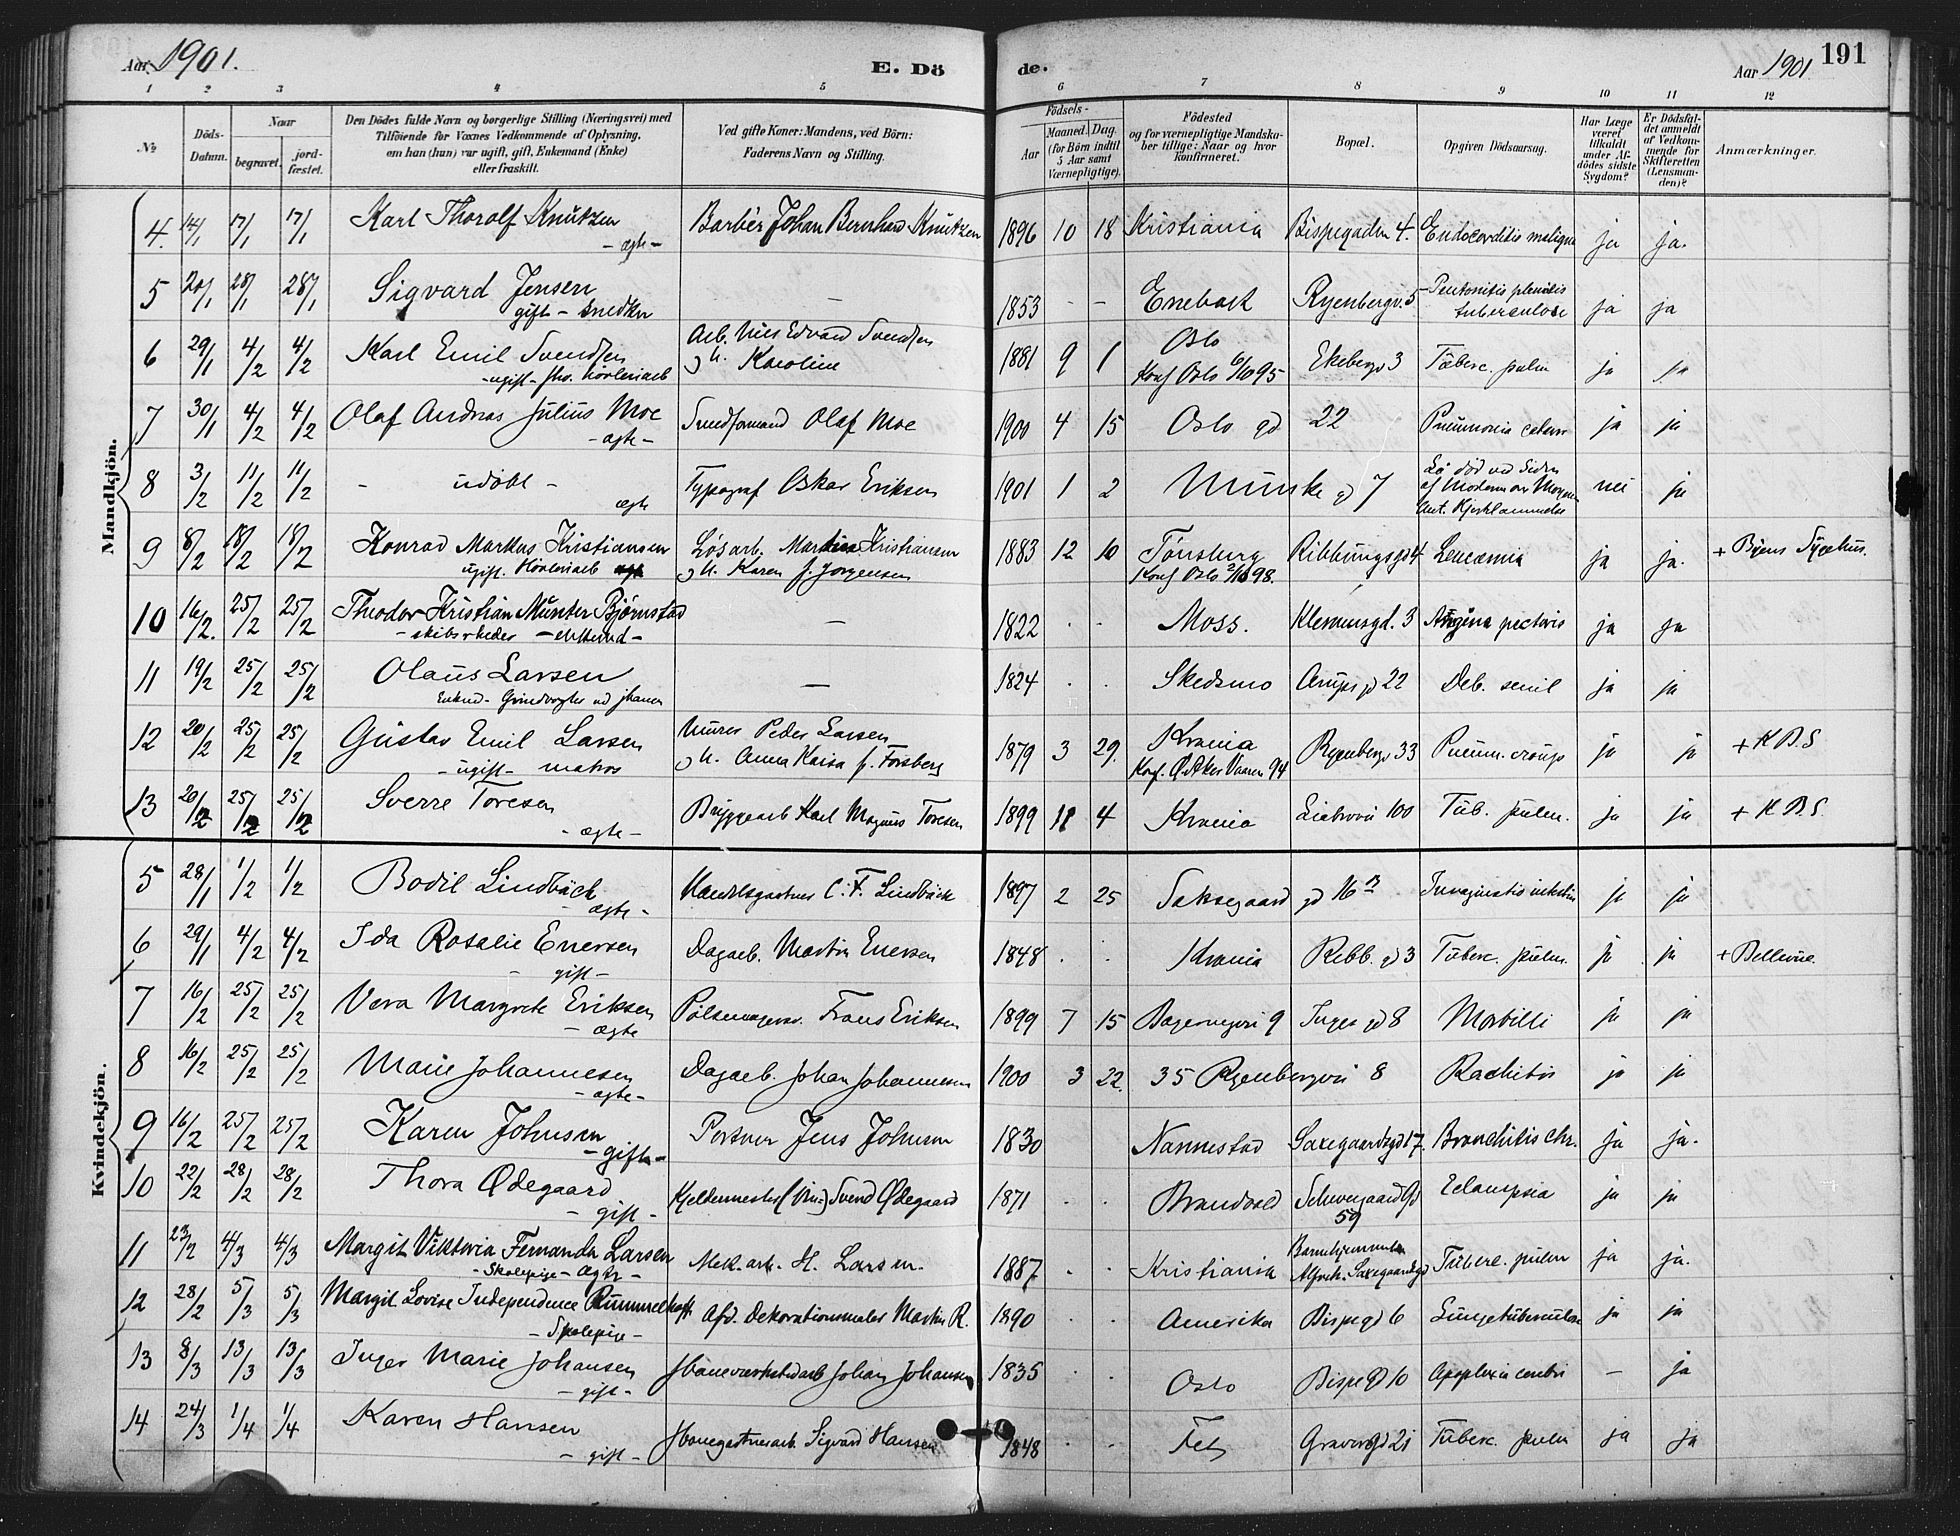 Aar 1901. E. Döde. Aar 1901 191
1 2 3 4 5 6 7 8 9 10 11 12
№
Döds-Datum.
Naar
begravet.
jord-fæstet.
Den Dödes fulde Navn og borgerlige Stilling (Næringsvei) med
Tilföiende for Voxnes Vedkommende af Oplysning,
om han (hun) var ugift, gift, Enkemand (Enke)
eller fraskilt.
Ved gifte Koner: Mandens, ved Börn:
Faderens Navn og Stilling.
Födsels-
Aar
Maaned. Dag.
(for Börn indtil
5 Aar samt
Værnepligtige).
Födested
og for værnepligtige Mandska-
ber tillige: Naar og hvor
konfirmeret.
Bopæl.
Opgiven Dödsaarsag.
Har Læge
været
tilkaldt
under Af-
dödes sidste
Sygdom?
Er Dödsfal-
det anmeldt
af Vedkom-
mende for
Skifteretten
(Lensman-
den)?
Anmærkninger.
Mandkjön.
4. 14/1 17/1 17/1 Karl Thorolf Knutzen Barbér Johan Bernhard Knutzen 1896 10 18 Kristiania Bispegaden 4. Endocarditis maligna ja ja.
- ægte -
5 20/1 28/1 28/1 Sigvard Jensen — 1853 - - Enebak Ryenbergv. 5 ja ja
gift - snedker tuberculose
6 29/1 4/2 4/2 Karl Emil Svendsen Arb. Nils Edvard Svendsen 1881 9 1 Oslo Ekebergv 3 Tuberc. pulm ja ja
- ugift - høvleriarb Karoline Konf Oslo 6/10 95
7 30/1 4/2 4/2 Olaf Andreas Julius Moe Olaf Moe 1900 4 15 Oslo gd 22 Pneumonia ja ja
- ægte -
8 3/2 11/2 11/2 - udøbt - Typograf Oskar Eriksen 1901 1 2 Munke gd 7 Lå død ved Siden nei ja
ægte af Moderen
9 8/2 18/2 18/2 Konrad Markus Kristiansen Løsarb. Kristiansen 1883 12 10 Tønsberg Ribbungsgd 4 Leucæmia ja ja. + Byens Sygehus.
ugift. Høvleriarb Karen f. Jørgensen Konf Oslo 98.
10 16/2. 25/2 25/2 Theodor Kristian Munter Bjørnstad — 1822 - - Moss. Klemensgd. 3 Angina pectoris ja ja
- skibsreder - enkemd -
11 19/2 25/2 25/2 Olaus Larsen — 1824 . . Skedsmo Arups gd 22 Deb. senil ja ja
Enkmd -
12 20/2 25/2 25/2 Gustav Emil Larsen Murer Peder Larsen 1879 3 29. Krania Ryenbergv 33 Pneum. croup ja ja + K B. S
- ugift - matros Anna Kaisa f. Forsberg Konf. Ø. Aker Vaaren 94
13 20/2 25/2 25/2 Sverre Toresen Bryggearb Karl Magnus Toresen 1899 11 4 Krania Liabrovei 100 Tub. pulm. ja ja + K B. S.
- ægte -
Kvindekjön.
5 28/1 1/2 1/2 Bodil Lindbäck Handelsgartner C. F. Lindbäck 1897 2 25 Saksegaard gd 16 B ja ja
- ægte -
6 29/1 4/2 4/2 Ida Rosalie Enersen Dagarb. Martin Enersen 1848 . . Krania Ribb. gd 3 Tuberc. pulm. ja ja + Bellevue.
- gift -
7 16/2 25/2 25/2 Vera Margrete Eriksen Pølsemager Frans Eriksen 1899 7 15 9 Inges gd 8 Morbilli ja ja
- ægte
8 16/2 25/2 25/2 Marie Johannesen Dagarb. Johan Johannesen 1900 3 22. 35 Ryenbergvei 8 Rachitis ja ja
- ægte -
9 16/2 25/2 25/2 Karen Johnsen Portner Jens Johnsen 1830 Nannestad Saxegaardsgd 17. Bronchitis chr. ja ja.
- gift -
10 22/2 28/2 28/2 Thora Ødegaard Kjeldermester Svend Ødegaard 1871 . . Brandvold Schweigaard Gd 59 Eclampsia ja ja
- gift -
11 23/2 4/3 4/3 Margit Viktoria Fernanda Larsen Mek. arb. H. Larsen. 1887 . . Kristiania Barnehjemmet Saxegaardsgd Tuberc. pulm ja ja.
- Skolepige - ægte -
12 28/2 5/3 5/3 Margit Lovise Independence Rummelhoff Afd. Dekorationsmaler Martin R. 1890 . . Amerika Bispegd 6 Lungetuberculose ja ja
- Skolepige -
13 8/3 13/3 13/3 Inger Marie Johansen Jbaneværkstedarb Johan Johansen 1835 . . Oslo Bispe gd 10 Apoplexia cerebri — ja
- gift -
14 24/3 1/4 1/4 Karen Hansen Sigvard Hansen 1848 . . Fet Gravergd 21 Tuberc. pulm ja ja
- gift -